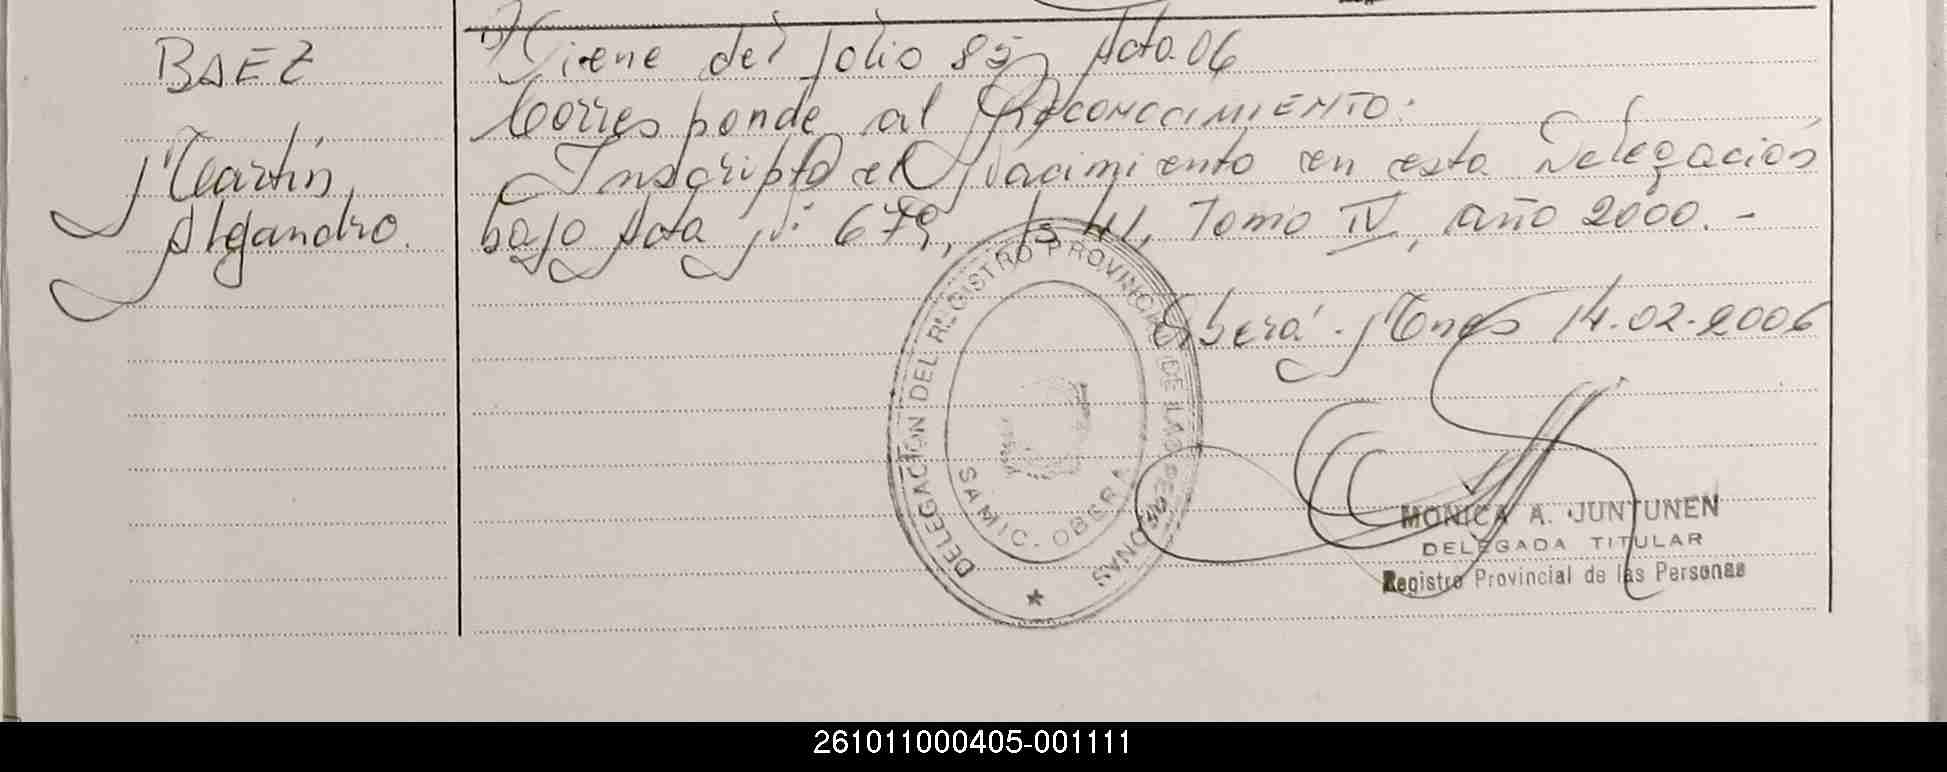 BAEZ
Martín
Alejandro.
Viene del folio 85 Acta 06
Corresponde al RECONOCIMIENTO:
Inscripto el Nacimiento en esta Delegación
bajo Acta Nº 679, Tomo IV, año 2000.-
Oberá - Mnes 14.02.2006
DELEGACION DEL REGISTRO PROVINCIAL DE LAS PERSONAS
SAMIC - OBERA
MONICA A. JUNTUNEN
DELEGADA TITULAR
Registro Provincial de las Personas
261011000405-001111